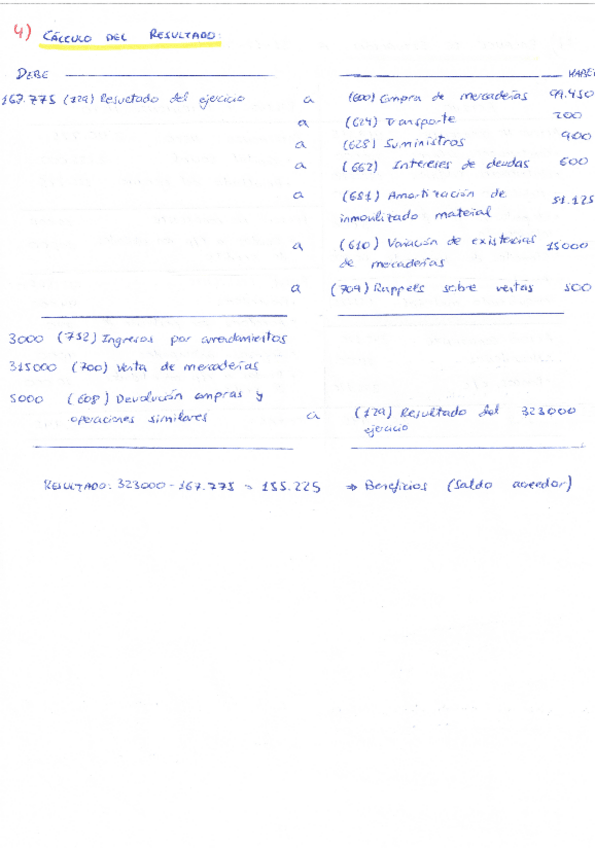 4) CÁLCULO DEL RESULTADO:
DEBE HABER
167.775 (129) Resultado del ejercicio a (600) Compra de mercaderías 99.450
a (624) Transporte 200
a (628) Suministros 900
a (662) Intereses de deudas 600
a (681) Amortización de 51.125
inmovilizado material
a (610) Variación de existencias 15000
de mercaderías
a (709) Rappels sobre ventas 500
3000 (752) Ingresos por arrendamientos
315000 (700) Venta de mercaderías
5000 (608) Devolución compras y
operaciones similares a (129) Resultado del 323000
ejercicio
RESULTADO: 323000 - 167.775 = 155.225 ⇒ Beneficios (Saldo acreedor)